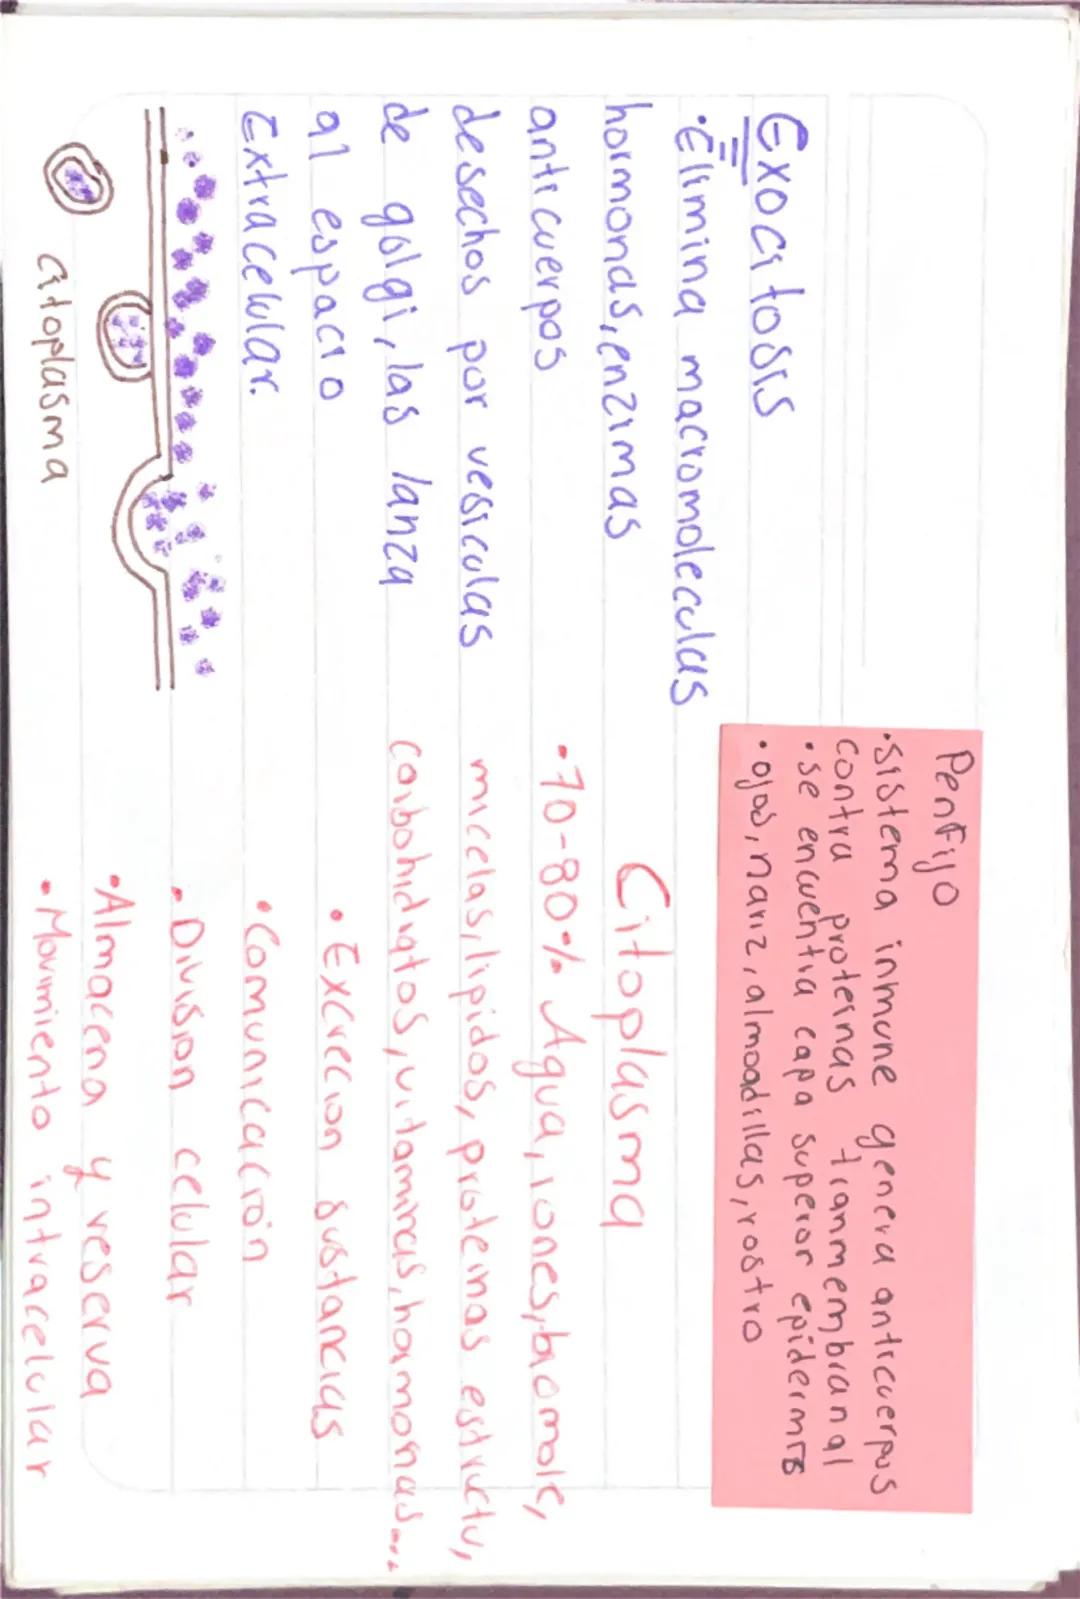 Exocitosis
·Elimina macromoleculas
hormonas, enzimas
anticuerpos
desechos por vesiculas
de golgi, las lanza
al espacio
Extracelular.
citoplasma
Penfijo
·sistema inmune genera anticuerpos
contra proteinas tranmembranal
·se encuentra capa superor epidermis
·ojos, nariz, almoadillas, rostro
Citoplasma
·70-80% Agua, iones, biomole,
micelas, lipidos, proteinas estructu,
carbohidratos, vitaminas, hormonas...
·Excrecion sustancias
·Comunicación
·Division celular
·Almacena y reserva
·Movimiento intracelular